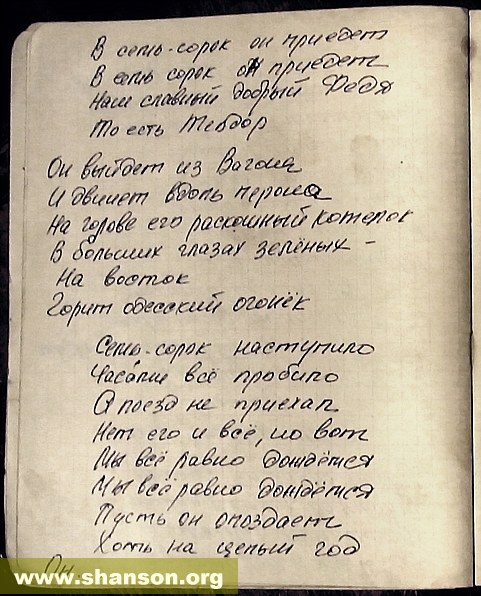 В семь-сорок он приедет
В семь сорок он приедет
Наш славный добрый Федя
То есть Теодор
Он выйдет из Вагона
И двинет вдоль перона
На голове его раскошный котелок
В больших глазах зелёных –
На восток
Горит одесский огонёк
Семь-сорок наступило
Часами всё пробило
А поезд не приехал
Нет его и всё, но вот
Мы всё равно дождёмся
Мы всё равно дождёмся
Пусть он опоздает
Хоть на целый год
Он
www.shanson.org